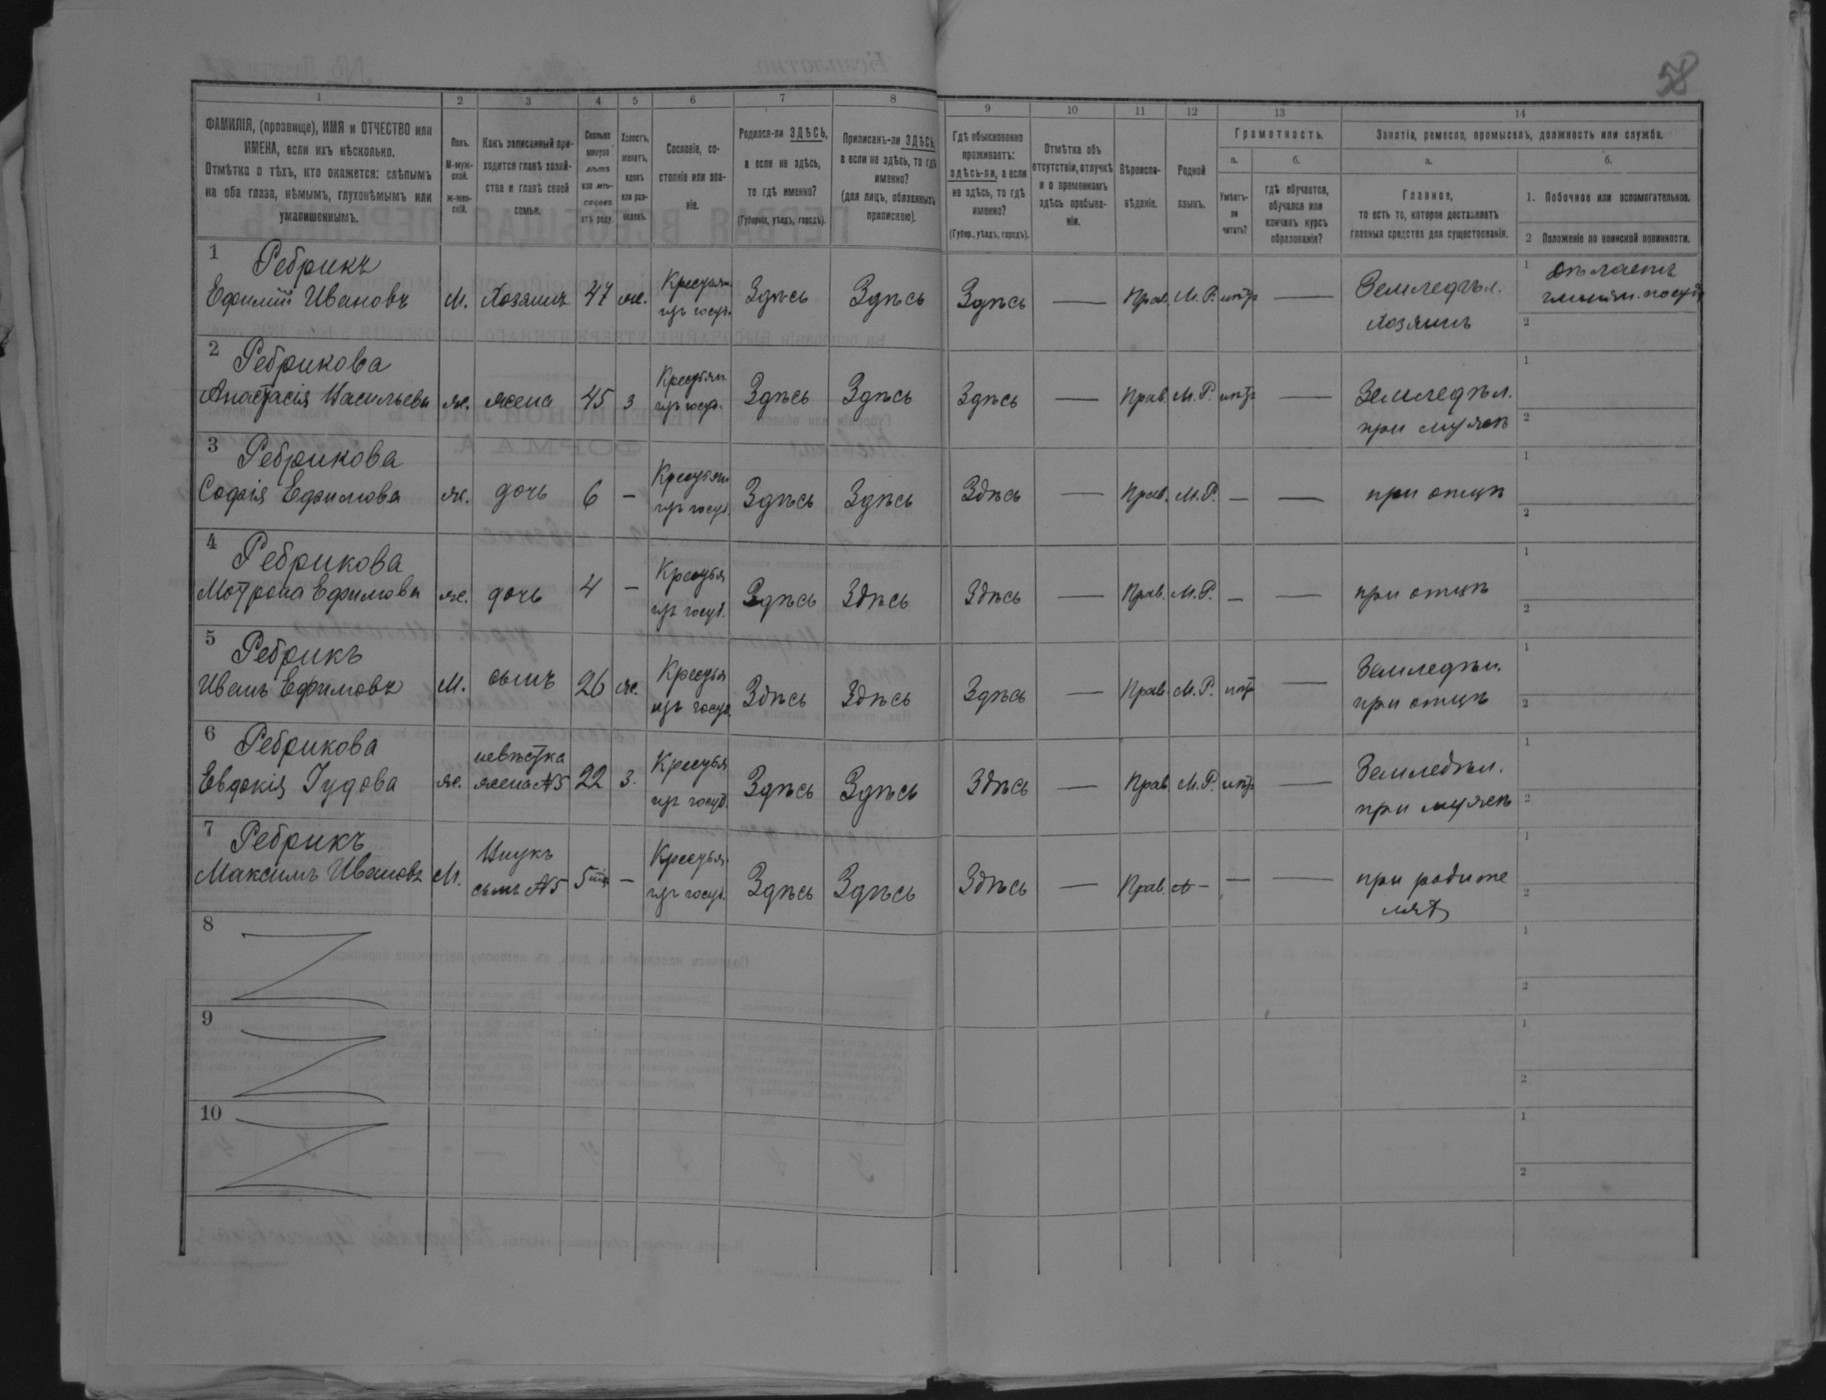 58
1 2 3 4 5 6 7 8 9 10 11 12 13 14
ФАМИЛІЯ, (прозвище), ИМЯ и ОТЧЕСТВО или
ИМЕНА, если ихъ нѣсколько.
Отмѣтка о тѣхъ, кто окажется: слѣпымъ
на оба глаза, нѣмымъ, глухонѣмымъ или
умалишеннымъ.
Полъ.
М-муж-
ской.
ж-жен-
скій.
Какъ записанный при-
ходится главѣ хозяй-
ства и главѣ своей
семьи.
Сколько
минуло
лѣтъ
или мѣ-
сяцевъ
отъ роду.
Холостъ,
женатъ,
вдовъ
или раз-
веденъ.
Сословіе, со-
стояніе или зва-
ніе.
Родился-ли ЗДѢСЬ,
а если не здѣсь,
то гдѣ именно?
(Губернія, уѣздъ, городъ).
Приписанъ-ли ЗДѢСЬ,
а если не здѣсь, то гдѣ
именно?
(для лицъ, обязанныхъ
припискою).
Гдѣ обыкновенно
проживаетъ:
здѣсь-ли, а если
не здѣсь, то гдѣ
именно?
(Губер., уѣздъ, городъ).
Отмѣтка объ
отсутствіи, отлучкѣ
и о временномъ
здѣсь пребыва-
ніи.
Вѣроиспо-
вѣданіе.
Родной
языкъ.
Грамотность.
а.
Умѣетъ-
ли
читать?
б.
гдѣ обучается,
обучался или
кончилъ курсъ
образованія?
Занятіе, ремесло, промыселъ, должность или служба.
а.
Главное,
то есть то, которое доставляетъ
главныя средства для существованія.
б.
1. Побочное или вспомогательное.
2 Положеніе по воинской повинности.
1 Ребрикъ
Ефимій Ивановъ М. Хозяинъ 47 же. Крестьян. изъ госуд. Здѣсь Здѣсь Здѣсь — Прав. М.Р. нѣтъ — Земледѣл. хозяинъ
1 дѣлаетъ
глинян. посуду
2
2 Ребрикова
Анастасія Васильева же. жена 45 з Крестьян. изъ госуд. Здѣсь Здѣсь Здѣсь — Прав. М.Р. нѣтъ — Земледѣл. при мужѣ
1
2
3 Ребрикова
Софія Ефимова же. дочь 6 — Крестьян. изъ госуд. Здѣсь Здѣсь Здѣсь — Прав. М.Р. — — при отцѣ
1
2
4 Ребрикова
Мотрона Ефимова же. дочь 4 — Крестья изъ госуд. Здѣсь Здѣсь Здѣсь — Прав. М.Р. — — при отцѣ
1
2
5 Ребрикъ
Иванъ Ефимовъ М. сынъ 26 же. Крестья изъ госуд. Здѣсь Здѣсь Здѣсь — Прав. М.Р. нѣтъ — Земледѣл. при отцѣ
1
2
6 Ребрикова
Евдокія Іудова же. невѣстка жена №5 22 з. Крестья изъ госуд. Здѣсь Здѣсь Здѣсь — Прав. М.Р. нѣтъ — Земледѣл. при мужѣ
1
2
7 Ребрикъ
Максимъ Ивановъ М. Внукъ сынъ №5 5 — Крестья. изъ госуд. Здѣсь Здѣсь Здѣсь — Прав. — — — при родителяхъ
1
2
8
1
2
9
1
2
10
1
2